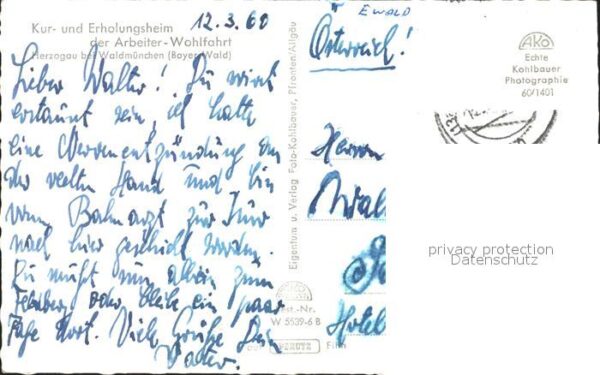 12.3.60
Kur- und Erholungsheim
der Arbeiter-Wohlfahrt
Herzogau bei Waldmünchen (Bayer. Wald)
Lieber Walter! Du wirst
erstaunt sein, ich hatte
eine Nervenentzündung an
der rechten Hand und bin
vom Bahnarzt zur Kur
nach hier geschickt worden.
Du mußt nun allein zum
oder bleibe ein paar
Tage dort. Viele Grüße Dein
Vater.
Eigentum u. Verlag Foto-Kohlbauer, Pfronten/Allgäu
EWALD
Österreich!
Herrn
Hotel
AKO
Echte
Kohlbauer
Photographie
60/1401
AKO
Best.-Nr.
W 5539-6 B
PERUTZ Film
privacy protection
Datenschutz